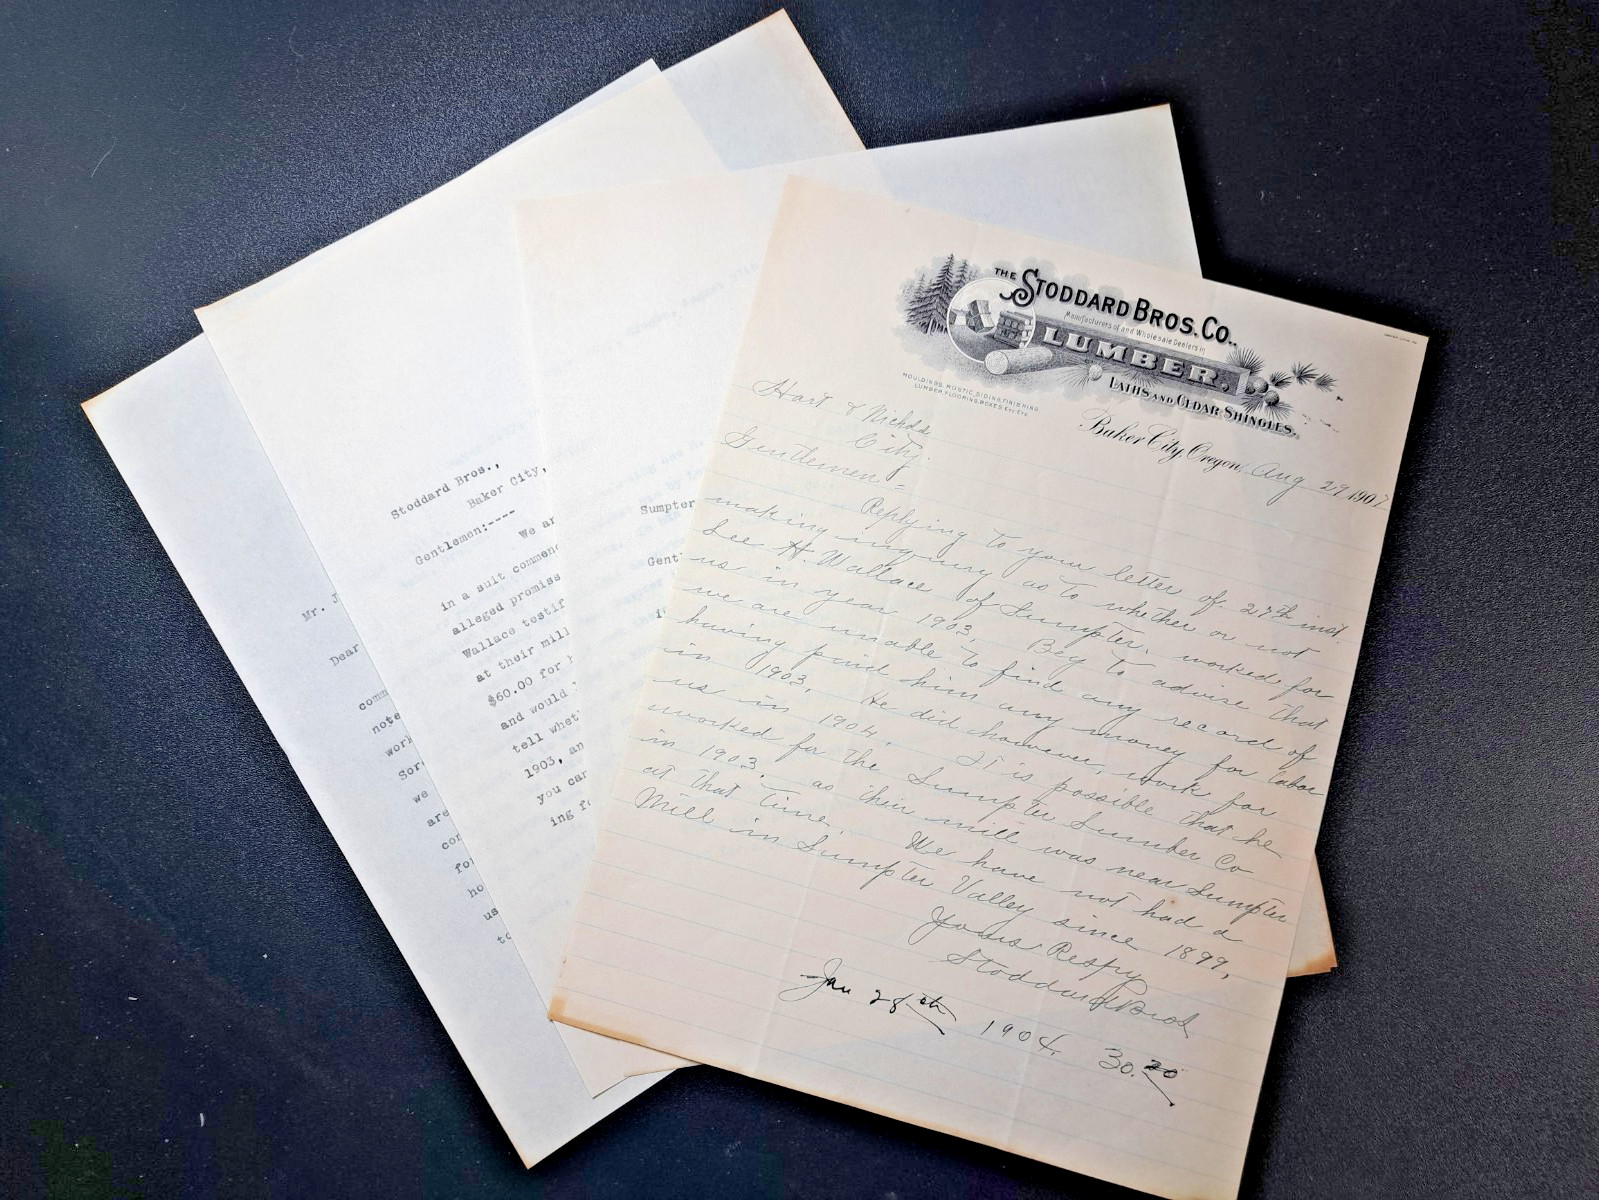 THE STODDARD BROS. CO..
Manufacturers of and Wholesale Dealers in
LUMBER.
LATHS AND CEDAR SHINGLES.
MOULDINGS, RUSTIC, SIDING, FINISHING
LUMBER, FLOORING, BOXES, ETC. ETC.
Baker City, Oregon, Aug 29 1907
Hart & Nichols
City.
Gentlemen =
Replying to your letter of 27th inst
making inquiry as to whether or not
Lee H. Wallace of Sumpter, worked for
us in year 1903. Beg to advise that
we are unable to find any record of
having paid him any money for labor
in 1903. He did however, work for
us in 1904. It is possible that he
worked for the Sumpter Lumber Co
in 1903, as their mill was near Sumpter
at that time. We have not had a
Mill in Sumpter Valley since 1899,
Yours Respy
Stoddard Bros
Jan 28th 1904. 30.20
Sumpter
Gent
Stoddard Bros.,
Baker City,
Gentlemen:----
We ar
in a suit commenc
alleged promiss
Wallace testif
at their mill
$60.00 for h
and would
tell whet
1903, an
you can
ing fo
Mr. J
Dear
comm
note
work
Sore
we
are
con
for
ho
us
to